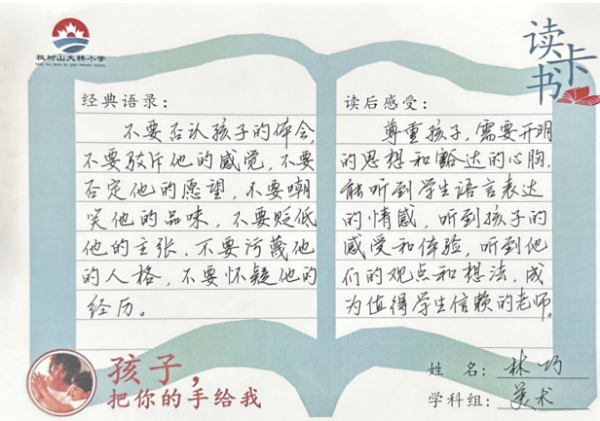 板樟山大桥小学
读书卡
经典语录：
不要否认孩子的体会，
不要驳斥他的感觉，不要
否定他的愿望，不要嘲
笑他的品味，不要贬低
他的主张，不要污蔑他
的人格，不要怀疑他的
经历。
读后感受：
尊重孩子，需要开明
的思想和豁达的心胸，
能听到学生语言表达
的情感，听到孩子的
感受和体验，听到他
们的观点和想法，成
为值得学生信赖的老师。
孩子，
把你的手给我
姓 名：林巧
学科组：美术